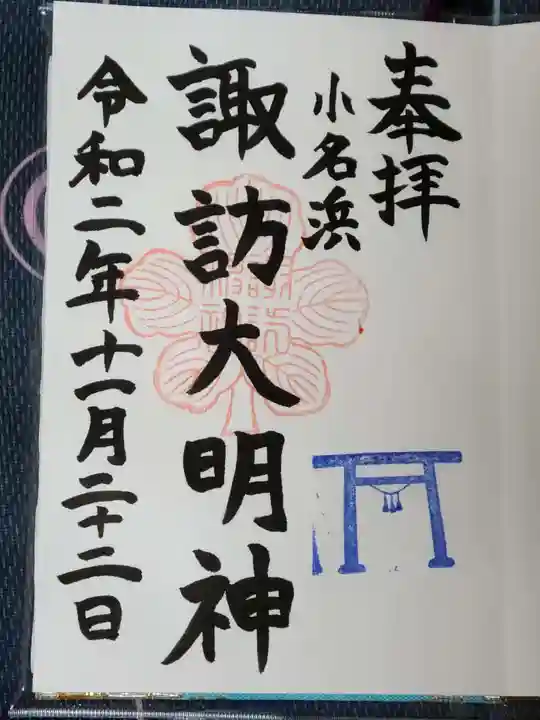 奉拝
小名浜
諏訪大明神
令和二年十一月二十二日